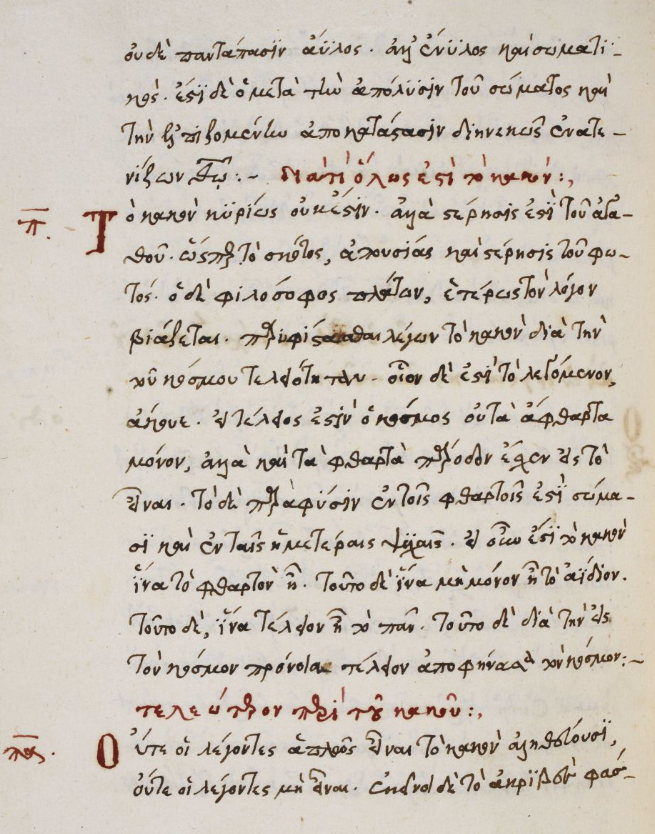 οὐδὲ παντάπασϊν ἀΰλος. ἀλλ' ἐνϋλος καὶ σωματι-
κός. ἐστὶ δὲ ὁ μετὰ τὴν ἀπόλϋσϊν τοῦ σώματος καὶ
τὴν ἐλπιζομένην ἀποκατάστασϊν διηνεκῶς ἐνατε-
νίζων θεῷ:~ διατί ὅλως ἐστὶ τὸ κακόν:,
π. Τὸ κακὸν κϋρίως οὐκ ἔστϊν. ἀλλὰ στέρησις ἐστϊ τοῦ ἀγα-
θοῦ. ὥσπερ τὸ σκότος, ἀπουσίας καὶ στέρησις τοῦ φω-
τός. ὁ δὲ φιλόσοφος πλάτων, ἑτέρως τὸν λόγον
βιάζεται. λέγων τὸ κακὸν διὰ τὴν
τοῦ κόσμου τελειότητα. οἷον δὲ ἐστὶ τὸ λεγόμενον,
ἄκουε. εἰ τέλειος ἐστϊν ὁ κόσμος οὐ τὰ ἄφθαρτα
μόνον, ἀλλὰ καὶ τὰ φθαρτὰ πρόοδον ἔχει εἰς τὸ
εἶναι. τὸ δὲ παρὰ φύσϊν ἐν τοῖς φθαρτοῖς ἐστὶ σώμα-
σϊ καὶ ἐν ταῖς ἡμετέραις ψϋχαῖς. εἰ οὕτω ἐστϊ τὸ κακὸν
ἵνα τὸ φθαρτὸν ᾖ. τοῦτο δὲ ἵνα μὴ μόνον ᾖ τὸ ἀΐδιον.
τοῦτο δὲ, ἵνα τέλειον ᾖ τὸ πᾶν. τοῦτο δὲ διὰ τὴν εἰς
τὸν κόσμον πρόνοιαν τέλειον ἀποφήνασθαι τὸν κόσμον:~
τελεώτερον περὶ τοῦ κακοῦ:,
Οὔτε οἱ λέγοντες ἁπλῶς εἶναι τὸ κακὸν ἀληθεύουσϊ,
οὔτε οἱ λέγοντες μὴ εἶναι. ἐκεῖνοι δὲ τὸ ἀκρϊβὲς φασ-